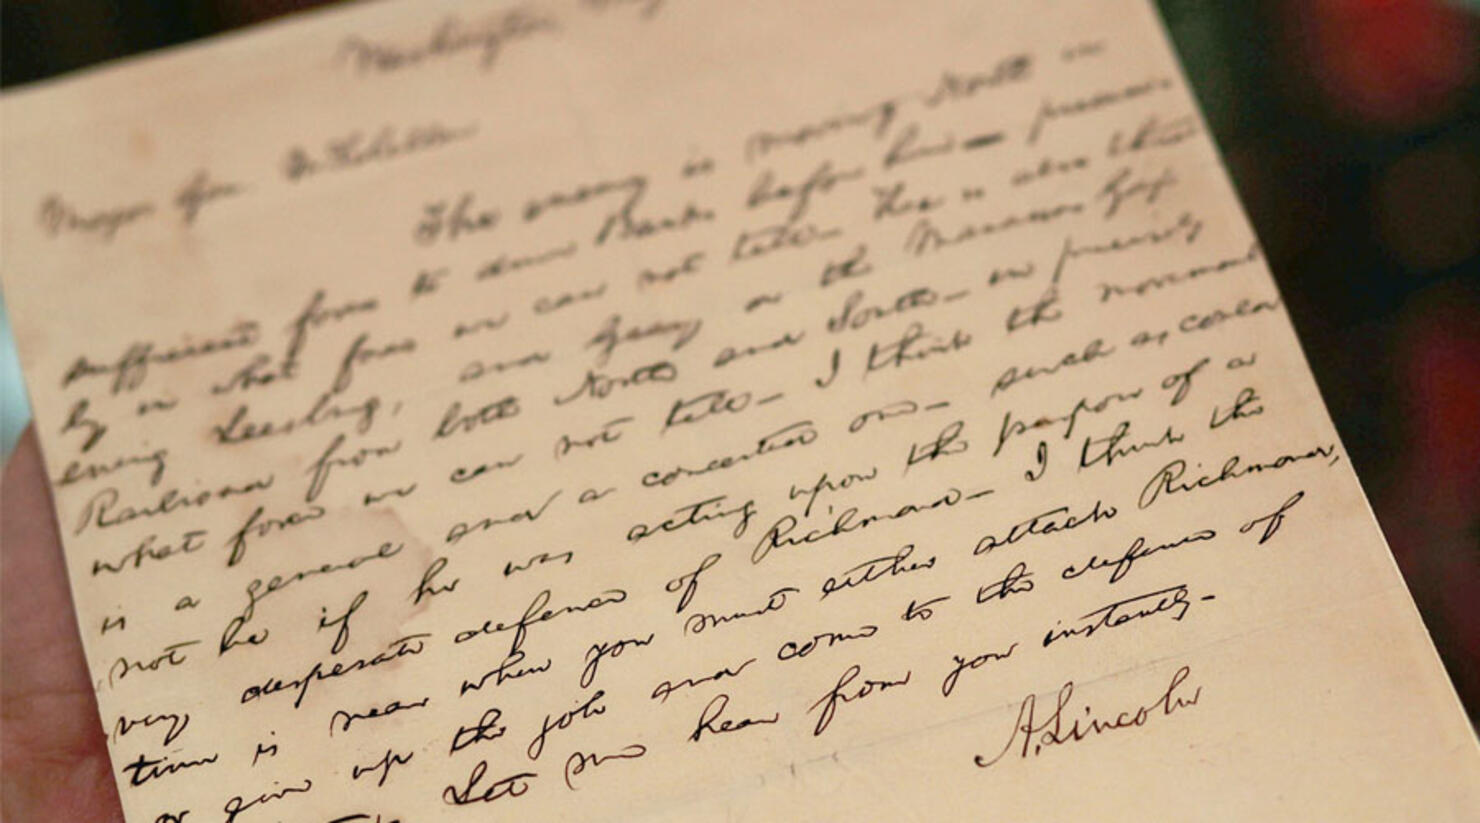 Washington, May
Major Gen. McClellan
The enemy is moving North in
sufficient force to drive Banks before him — precise-
ly in what force we can not tell. He is also threat
ening Leesburg, and Geary on the Manassas Gap
Railroad from both North and South — in precisely
what force we can not tell — I think the movement
is a general and a concerted one — such as could
not be if he was acting upon the purpose of a
very desperate defence of Richmond — I think the
time is near when you must either attack Richmond,
or give up the job and come to the defence of
Let me hear from you instantly —
A. Lincoln